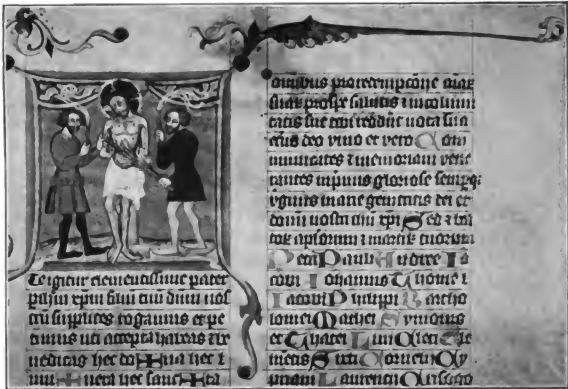 Te igitur clementissime pater
p ihm xpm filiu tuu dnm nos
tru supplices rogamus et pe
timus uti accepta habeas et be
nedicas hec do✠na hec ⁊
mu✠nera hec sanc✠ta
omibus pro redempcone aiar
suar pro spe salutis ⁊ incolumi
tatis sue tibi reddut uota sua
etno deo viuo et vero Com
municates ⁊ memoriam vene
rantes inpimis gloriose sempq
virginis marie genitricis dei et
domi nostri ihu xpi Sed ⁊ bea
tor apstor ⁊ martir tuorum
Petri Pauli Andree Ia
cobi Iohannis Thome I
acobi Philippi Bartho
lomei Mathei Symonis
et Thatei Lini Cleti Cle
mentis Sixti Cornelii Cy
priani Laurencii Crisogo